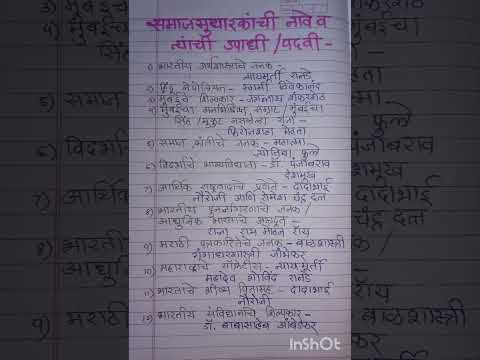 समाजसुधारकांची नावे व
त्यांची उपाधी / पदवी -
१) भारतीय अर्थशास्त्राचे जनक
न्यायमूर्ती रानडे
२) हिंदू नेपोलियन - स्वामी विवेकानंद
३) मुंबईचे शिल्पकार - जगन्नाथ शंकरशेठ
४) मुंबईचा अनभिषिक्त सम्राट / मुंबईचा
सिंह / मुकुट नसलेला राजा -
फिरोजशहा मेहता
५) समाज क्रांतीचे जनक - महात्मा
ज्योतिबा फुले
६) विदर्भाचे भाग्यविधाता - डॉ. पंजाबराव
देशमुख
७) आर्थिक राष्ट्रवादाचे प्रणेते - दादाभाई
नौरोजी आणि रोमेश चंद्र दत्त
८) भारतीय पुनर्जागरणाचे जनक /
आधुनिक भारताचे अग्रदूत -
राजा राम मोहन रॉय
९) मराठी पत्रकारितेचे जनक - बाळशास्त्री
गंगाधरशास्त्री जांभेकर
१०) महाराष्ट्राचे सॉक्रेटीस - न्यायमूर्ती
महादेव गोविंद रानडे
११) भारताचे भीष्म पितामह - दादाभाई
नौरोजी
१२) भारतीय संविधानाचे शिल्पकार -
डॉ. बाबासाहेब आंबेडकर
InShot